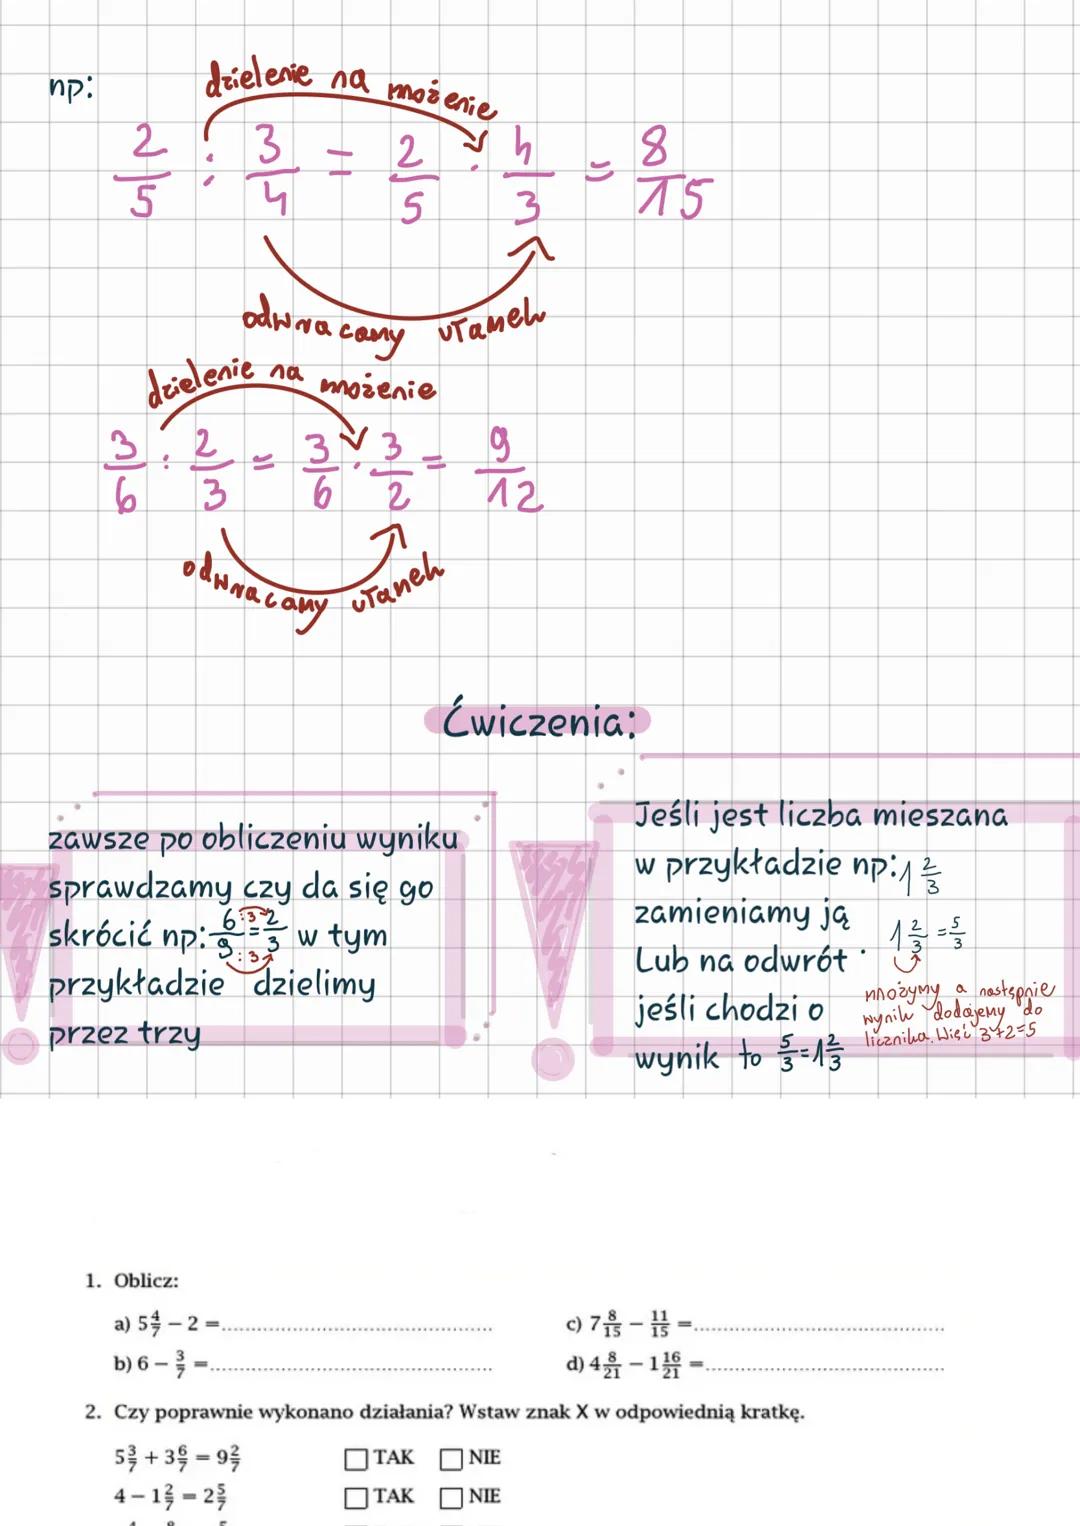 np:
dzielenie na możenie
2/5 : 3/4 = 2/5 · 4/3 = 8/15
odwracamy ułamek
dzielenie na możenie
3/6 : 2/3 = 3/6 · 3/2 = 9/12
odwracamy ułamek
Ćwiczenia:
zawsze po obliczeniu wyniku
sprawdzamy czy da się go
skrócić np: 6/9 = 2/3 w tym
:3
:3
przykładzie dzielimy
przez trzy
Jeśli jest liczba mieszana
w przykładzie np: 1 2/3
zamieniamy ją
1 2/3 = 5/3
Lub na odwrót
jeśli chodzi o
wynik to 5/3 = 1 2/3
mnożymy a następnie
wynik dodajemy do
licznika. Więc 3+2=5
1. Oblicz:
a) 5 4/7 − 2 =
c) 7 8/15 − 11/15 =
b) 6 − 3/7 =
d) 4 8/21 − 1 16/21 =
2. Czy poprawnie wykonano działania? Wstaw znak X w odpowiednią kratkę.
5 3/7 + 3 6/7 = 9 2/7 □ TAK □ NIE
4 − 1 2/7 = 2 5/7 □ TAK □ NIE